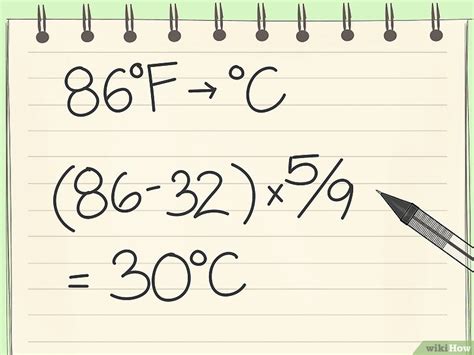 86°F → °C
(86-32) × 5/9
= 30°C
wikiHow